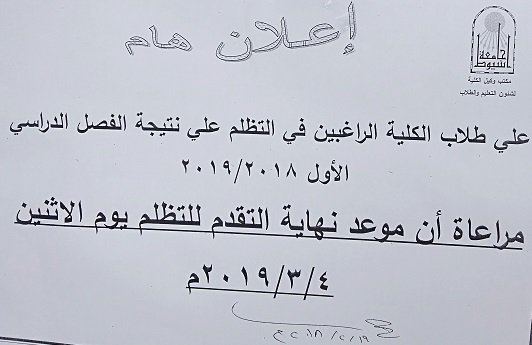 إعلان هام
جامعة
أسيوط
مكتب وكيل الكلية
لشئون التعليم والطلاب
علي طلاب الكلية الراغبين في التظلم علي نتيجة الفصل الدراسي
الأول ٢٠١٩/٢٠١٨
مراعاة أن موعد نهاية التقدم للتظلم يوم الاثنين
٢٠١٩/٣/٤م